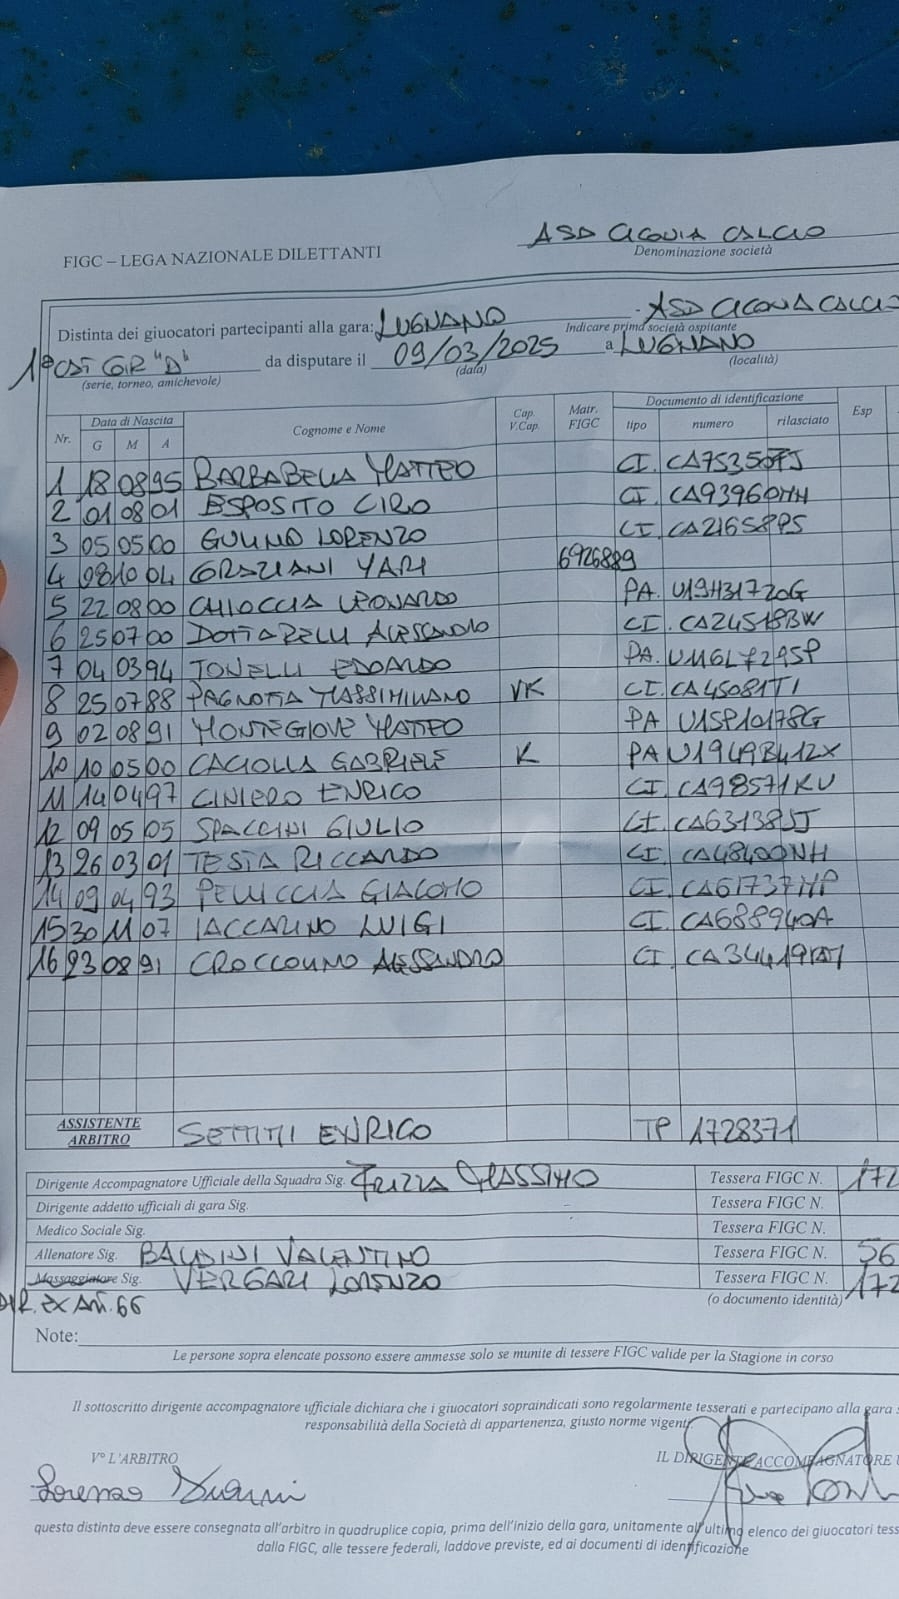 ASD ACQUIA CALCIO
FIGC – LEGA NAZIONALE DILETTANTI
Denominazione società
Distinta dei giuocatori partecipanti alla gara: LUGNANO - ASD ACQUIA CALCIO
Indicare prima società ospitante
1ª CAT GIR "D" da disputare il 09/03/2025 a LUGNANO
(serie, torneo, amichevole) (data) (località)
Nr. Data di Nascita Cognome e Nome Cap. V.Cap. Matr. FIGC Documento di identificazione Esp
G M A tipo numero rilasciato
1 18 08 95 BARBABELLA MATTEO CI.
2 01 08 01 ESPOSITO CIRO CI. CA93960HH
3 05 05 00 GULINO LORENZO CI. CA21658PS
4 08 10 04 GRAZIANI YARI 6926889
5 22 08 00 CHIOCCIA LEONARDO PA. U19H31720G
6 25 07 00 DOTTARELLI ALESSANDRO CI. CA24518BW
7 04 03 94 TONELLI EDOARDO PA. U116L7295P
8 25 07 88 PAGNOTTA MASSIMILIANO VK CI. CA45081TI
9 02 08 91 MONTEGIOVE MATTEO PA U15P10178G
10 10 05 00 CACIOLLA GABRIELE K PA U1949B412X
11 14 04 97 CINIERO ENRICO CI. CA98571KU
12 09 05 05 SPACCINI GIULIO CI. CA63138SJ
13 26 03 01 TESTA RICCARDO CI. CA48400NH
14 09 04 93 PELLICCIA GIACOMO CI. CA61737HP
15 30 11 07 IACCARINO LUIGI CI. CA68894OA
16 23 08 91 CROCCOLINO ALESSANDRO CI.
ASSISTENTE ARBITRO SETTIMI ENRICO TP 1728371
Dirigente Accompagnatore Ufficiale della Squadra Sig. MASSIMO Tessera FIGC N. 172
Dirigente addetto ufficiali di gara Sig. Tessera FIGC N.
Medico Sociale Sig. Tessera FIGC N.
Allenatore Sig. BALDINI VALENTINO Tessera FIGC N. 56
Massaggiatore Sig. VERGARI LORENZO Tessera FIGC N. 172
DIR. EX Art. 66 (o documento identità)
Note:
Le persone sopra elencate possono essere ammesse solo se munite di tessere FIGC valide per la Stagione in corso
Il sottoscritto dirigente accompagnatore ufficiale dichiara che i giuocatori sopraindicati sono regolarmente tesserati e partecipano alla gara s
responsabilità della Società di appartenenza, giusto norme vigenti.
V° L'ARBITRO IL DIRIGENTE ACCOMPAGNATORE U
Lorenzo
questa distinta deve essere consegnata all'arbitro in quadruplice copia, prima dell'inizio della gara, unitamente all'ultimo elenco dei giuocatori tess
dalla FIGC, alle tessere federali, laddove previste, ed ai documenti di identificazione